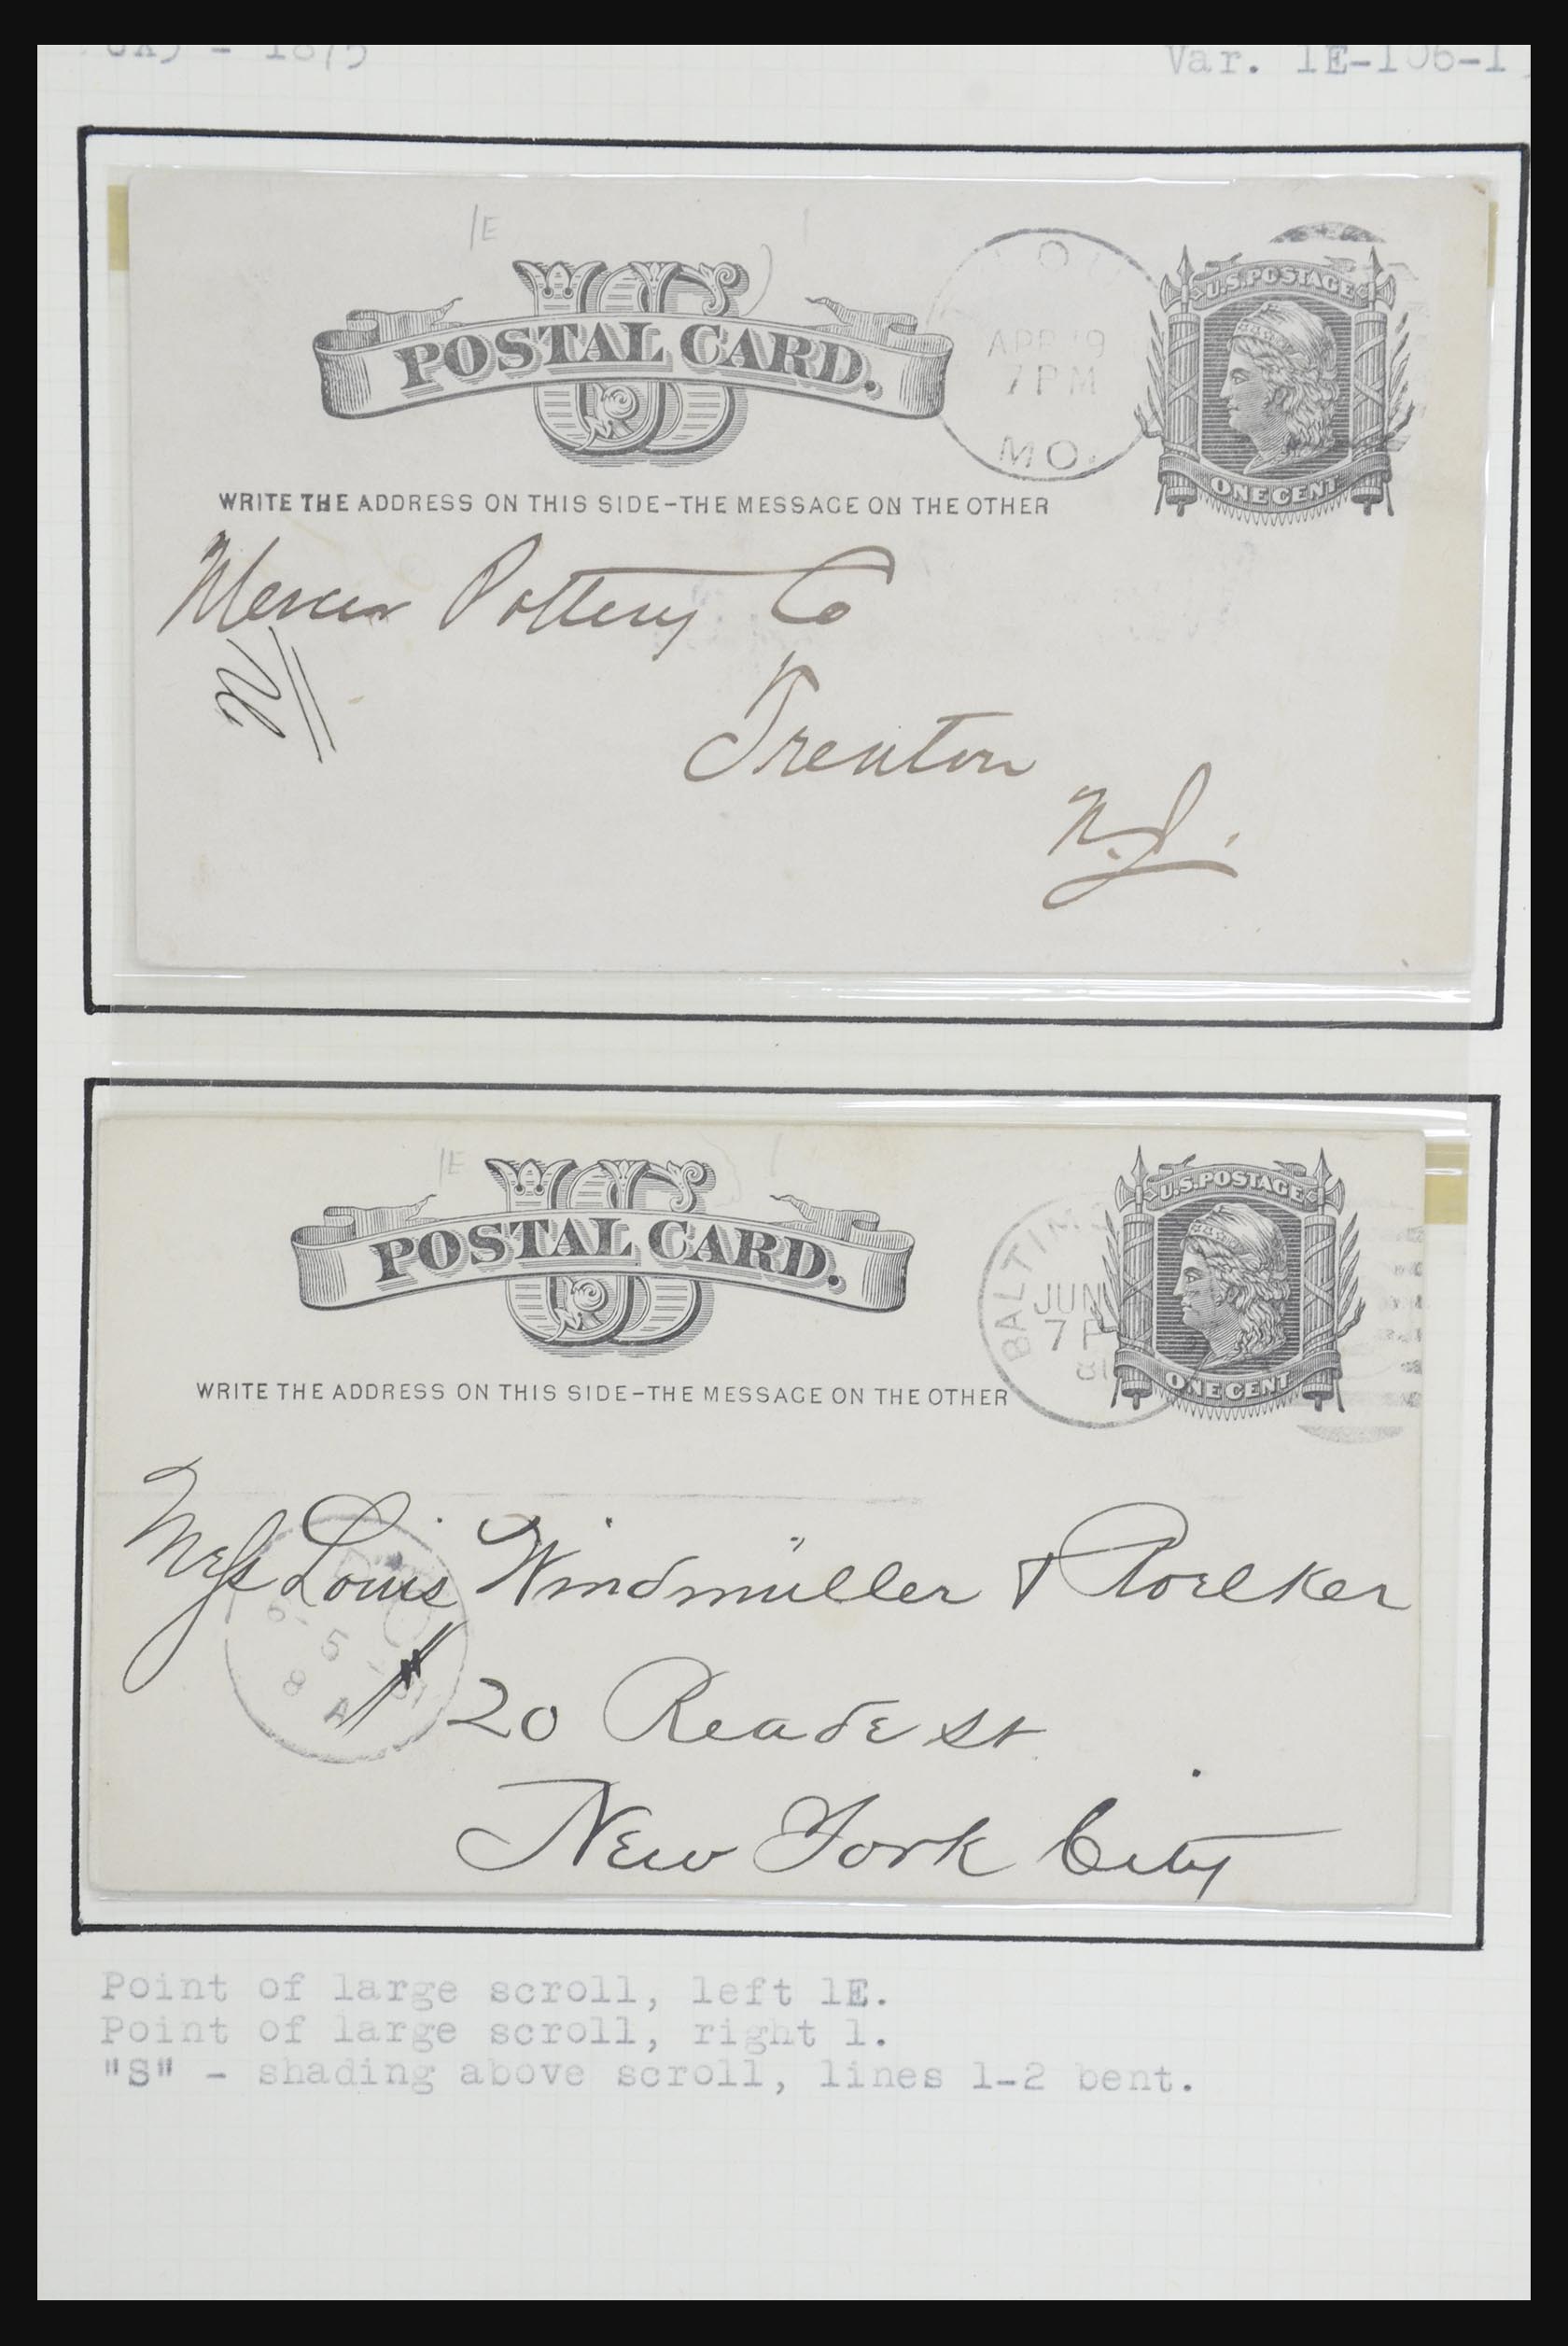 - 1875
Var. 1E-106-1
1E
US
POSTAL CARD.
APR 19
7 PM
MO.
U.S. POSTAGE
ONE CENT
WRITE THE ADDRESS ON THIS SIDE-THE MESSAGE ON THE OTHER
Mercer Pottery Co
Trenton
N.J.
1E
US
POSTAL CARD.
BALTIM
JUN
7 P
81
U.S. POSTAGE
ONE CENT
WRITE THE ADDRESS ON THIS SIDE-THE MESSAGE ON THE OTHER
Mess Louis Windmüller & Roelker
5
8 A
20 Reade St
New York City
Point of large scroll, left 1E.
Point of large scroll, right 1.
"S" - shading above scroll, lines 1-2 bent.